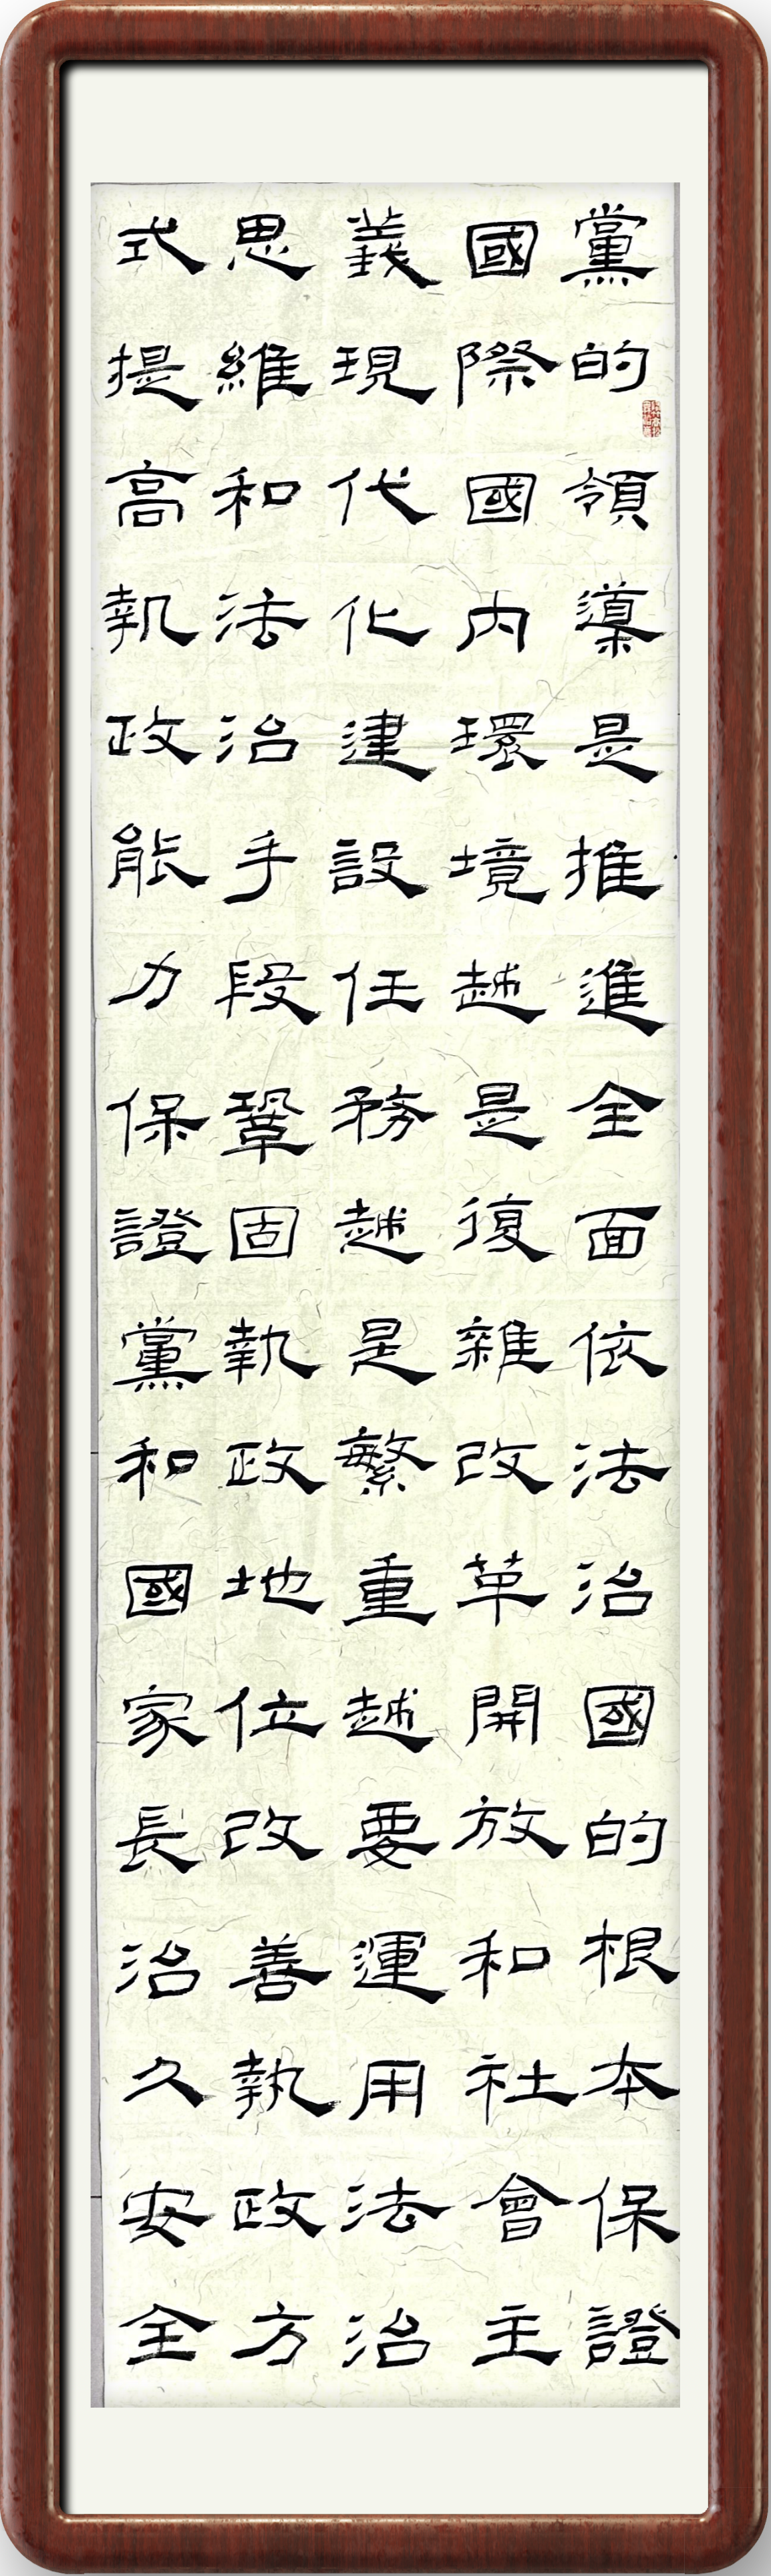 黨的領導是推進全面依法治國的根本保證
國際國内環境越是復雜改革開放和社會主
義現代化建設任務越是繁重越要運用法治
思維和法治手段鞏固執政地位改善執政方
式提高執政能力保證黨和國家長治久安全